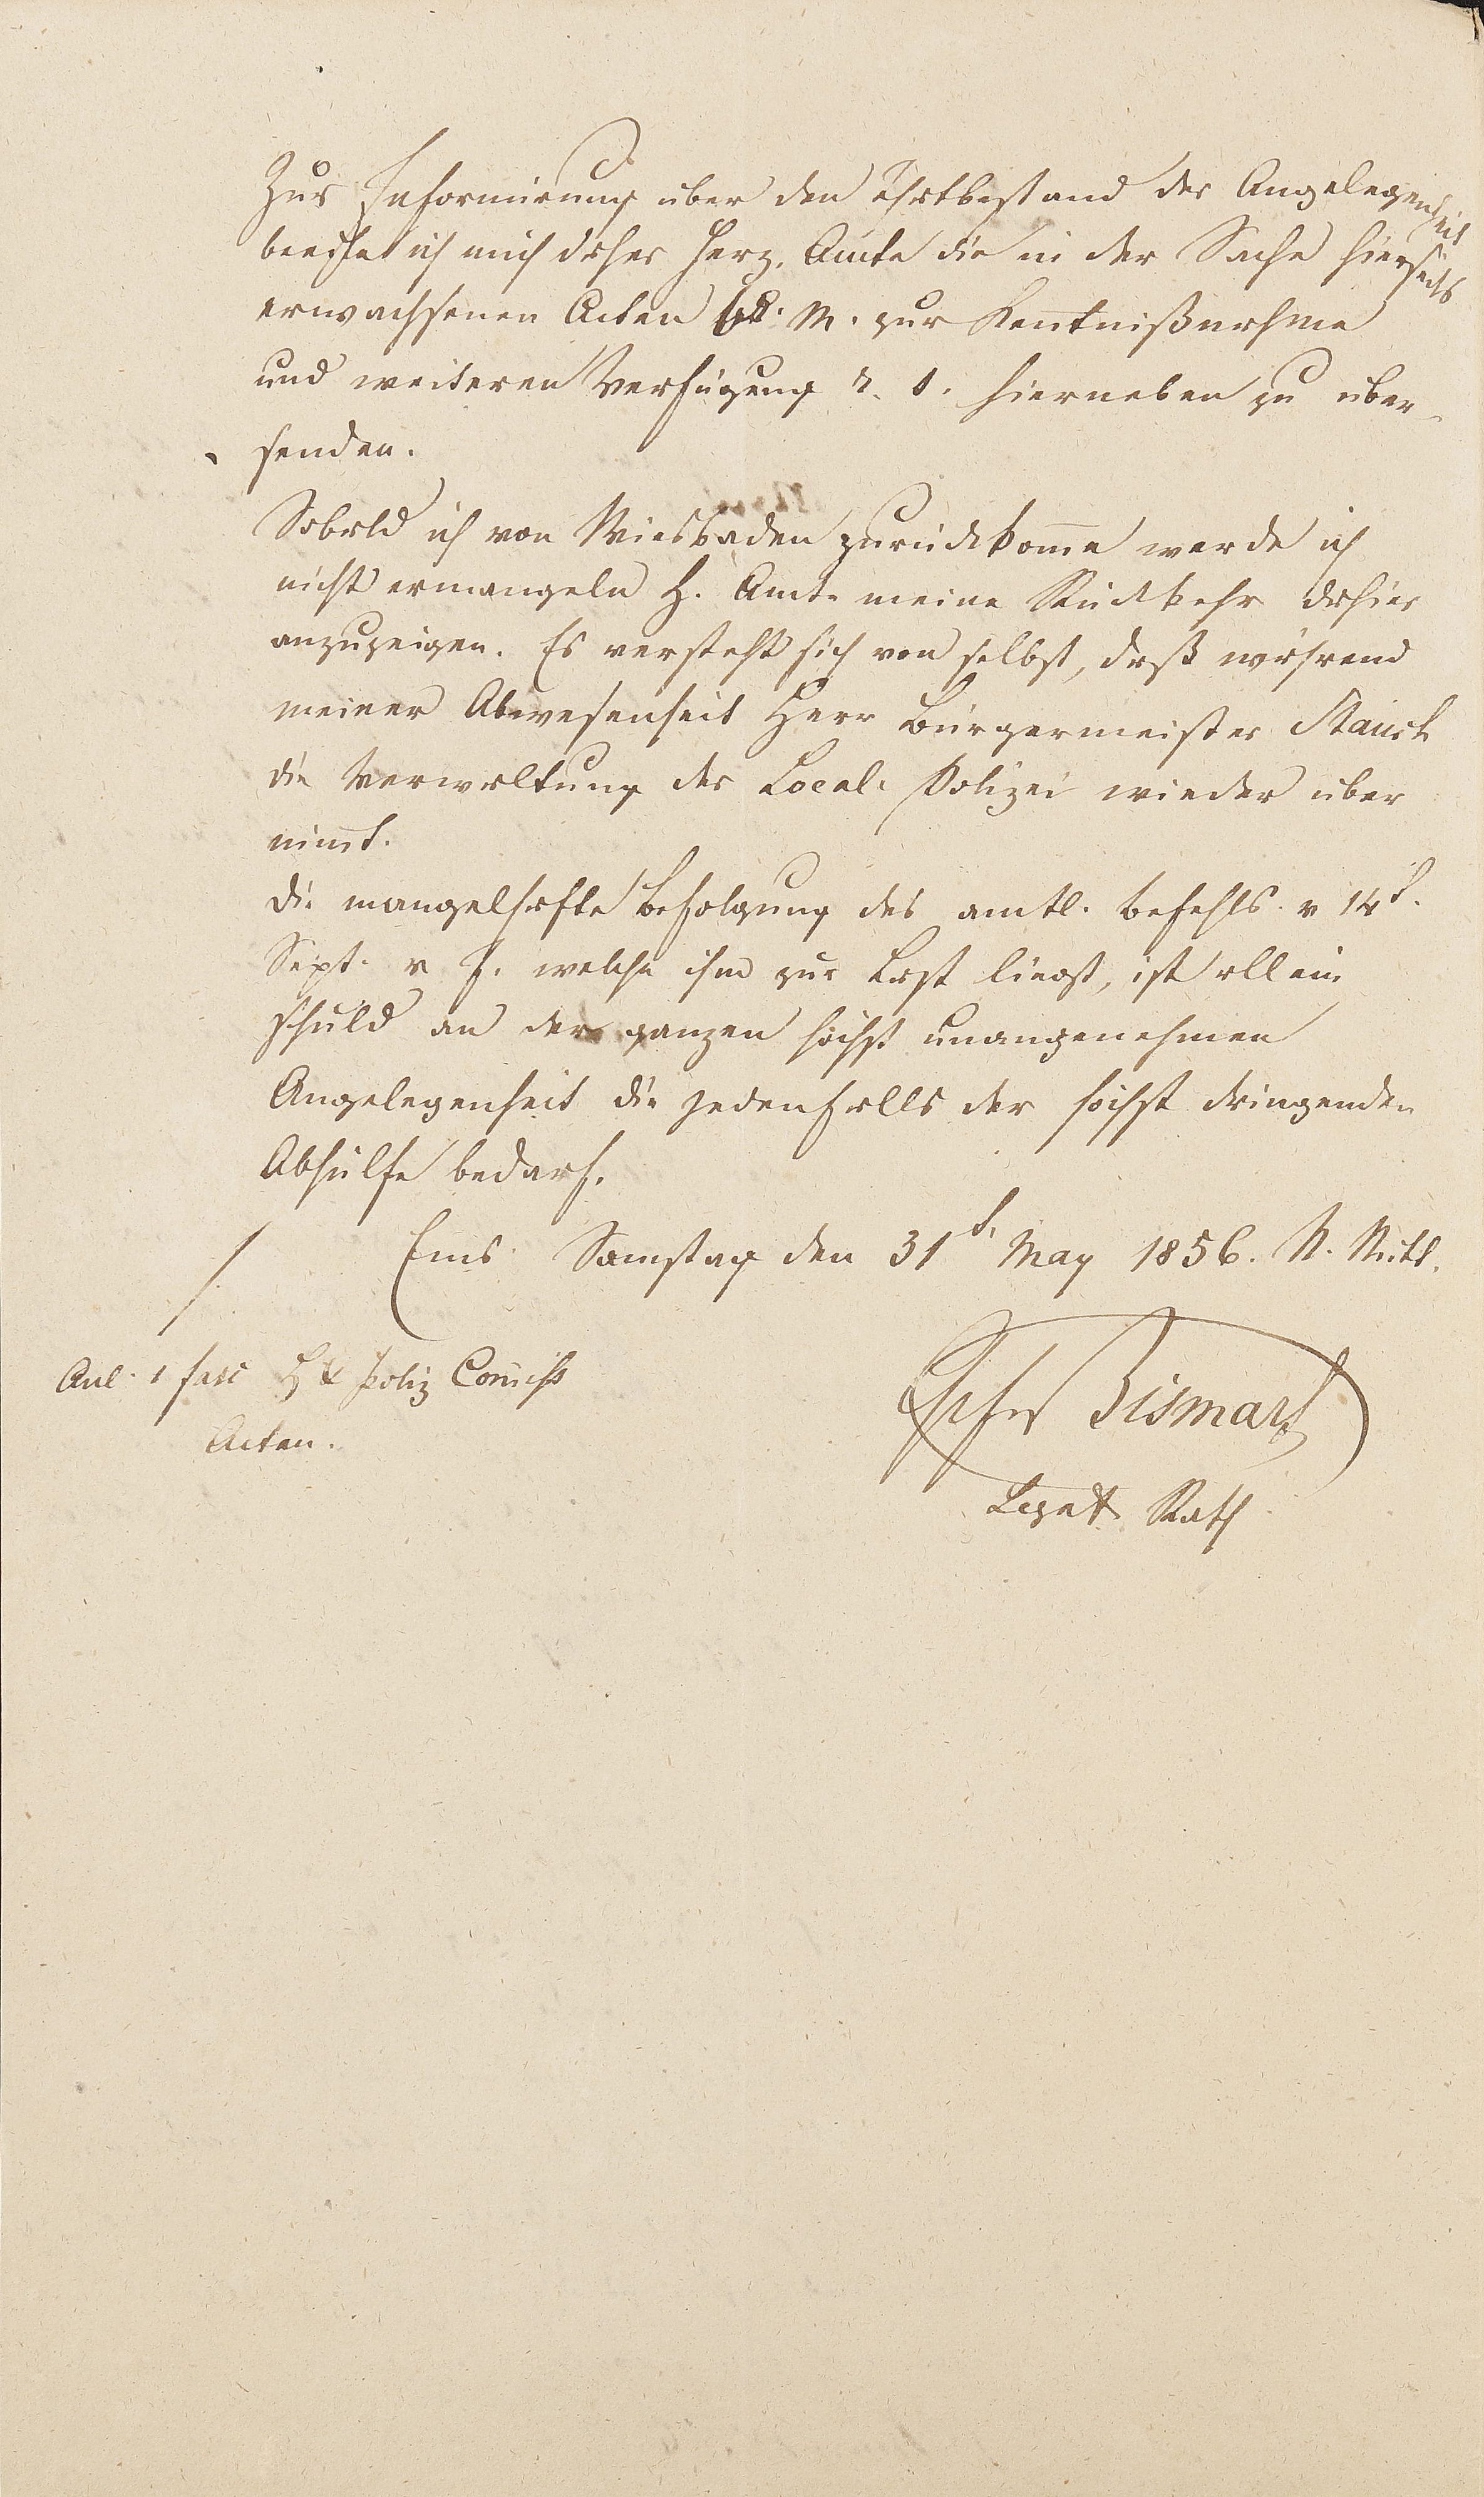 Zur Informirung über den Thatbestand der Angelegenheit
beeile ich mich daher Herz. Amte die in der Sache hierseits
erwachsenen Acten M. zur Kentnißnahme
und weiteren Verfügung hierneben zu über-
senden.
Sobald ich von Wiesbaden zurückkome werde ich
nicht ermangeln H. Amte meine Rückkehr dahier
anzuzeigen. Es versteht sich von selbst, daß während
meiner Abwesenheit Herr Bürgermeister
die Verwaltung der Local Polizei wieder über
nimt.
Die mangelhafte Befolgung des amtl. Befehls v 14t.
Sept. v J. welche ihm zur Last liegt, ist allein
schuld an der ganzen höchst unangenehmen
Angelegenheit die jedenfalls der höchst dringenden
Abhülfe bedarf.
Ems Samstag den 31t. May 1856. N. Mitt.
Anl. 1 fasc Poliz Comiss
Acten.
Bismark
Legat Rath